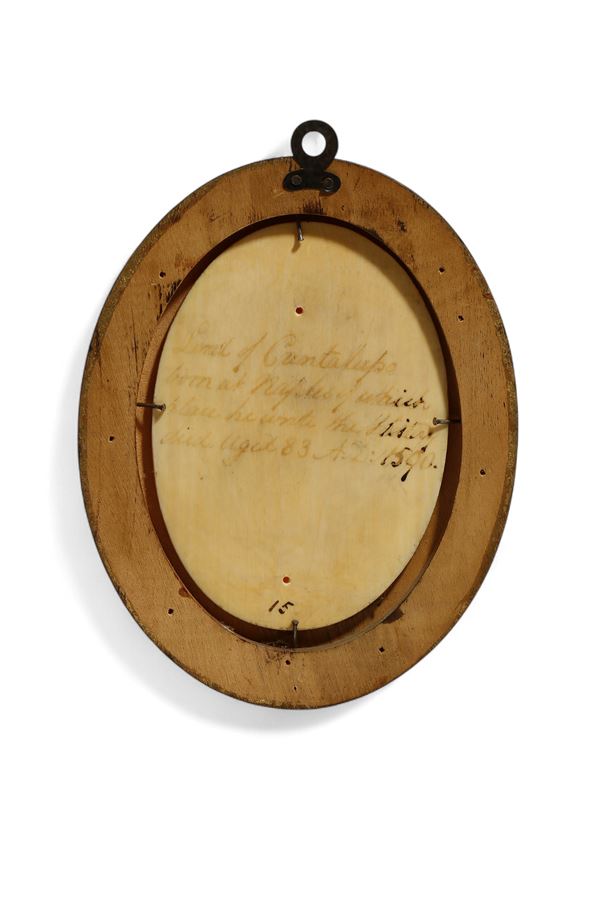 Lord of Cantalupo
born at Naples of which
place he wrote the Histo
died Aged 83 A.D: 1590.
15